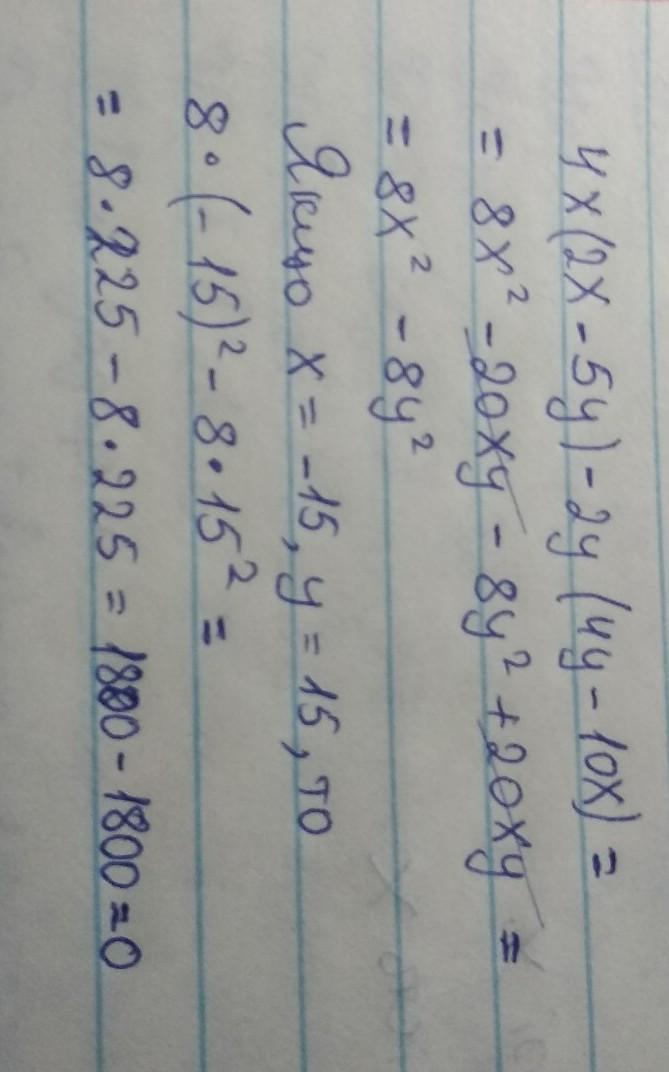 4x(2x - 5y) - 2y(4y - 10x) =
= 8x² - 20xy - 8y² + 20xy =
= 8x² - 8y²
Якщо x = -15, y = 15, то
8 · (-15)² - 8 · 15² =
= 8 · 225 - 8 · 225 = 1800 - 1800 = 0